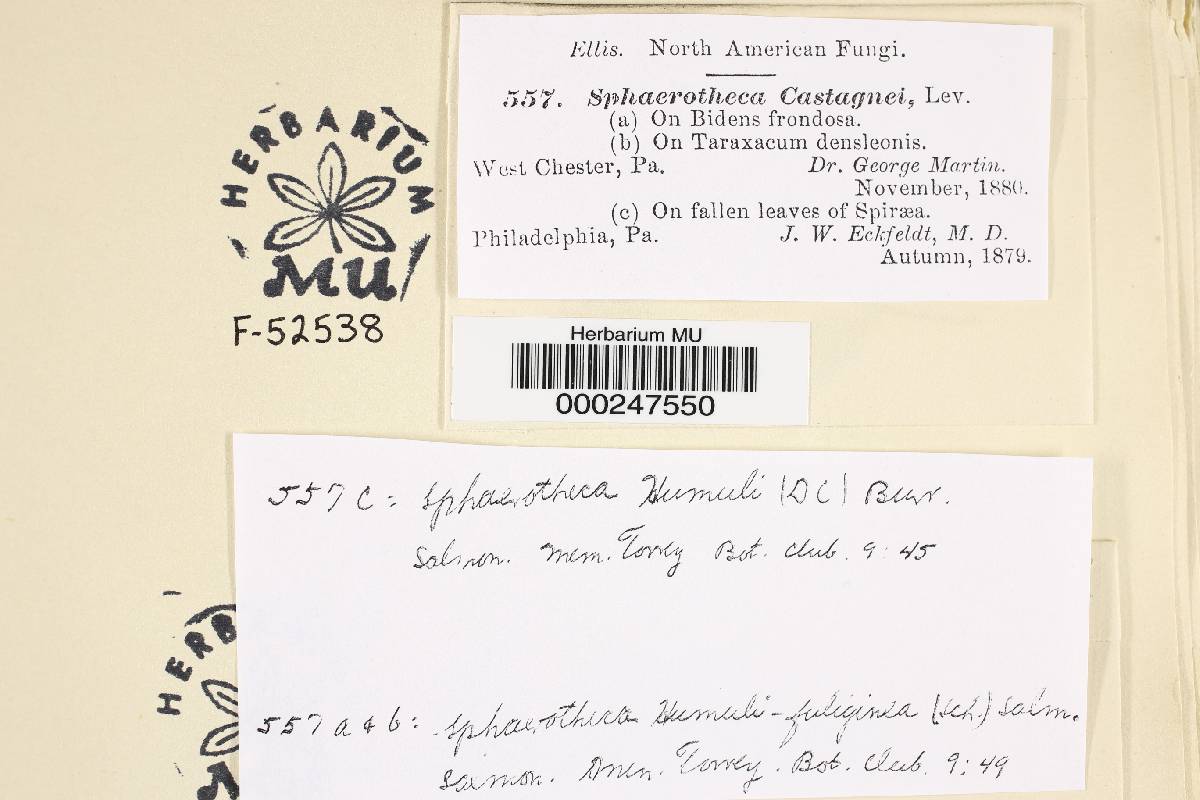 Ellis. North American Fungi.
557. Sphaerotheca Castagnei, Lev.
(a) On Bidens frondosa.
(b) On Taraxacum densleonis.
West Chester, Pa. Dr. George Martin.
November, 1880.
(c) On fallen leaves of Spiræa.
Philadelphia, Pa. J. W. Eckfeldt, M. D.
Autumn, 1879.
HERBARIUM
MU
F-52538
Herbarium MU
000247550
557 c: Sphaerotheca Humuli (DC) Burr.
Salmon. Mem. Torrey Bot. Club. 9:45
HERB
557 a & b: Sphaerotheca Humuli-fuliginea (Sch.) Salm.
Salmon. Mem. Torrey. Bot. Club. 9:49